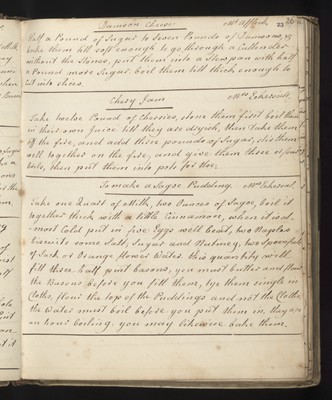 Damson Cheese. Mrs
23
Half a Pound of Sugar to Seven Pounds of Damsons,
bake them till soft enough to go through a Cullender
without the Stones, put them into a Stewpan with half
a Pound more Sugar. boil them till thick enough to
cut into slices.
Chery Jam
Take twelve Pound of cherries, stone them first boil them
in their own Juice till they are dryish, then take them
off the fire, and add three pounds of Sugar, stir them
well together on the fire, and give them three or four
boils, then put them into pots for Use.
To make a Sagoe Pudding.
Take one Quart of Milk, two Ounces of Sagoe, boil it
together thick with a little Cinnamon, when it is al-
-most Cold put in five Eggs well beat, two Naples
biscuits some Salt, Sugar and Nutmeg, two Spoonfuls
of Sack or Orange flower Water. this quantity will
fill three half pint basons, you must butter and flour
the Basons before you fill them, tye them single in
Cloths, flour the top of the Puddings and not the Cloths,
the Water must boil before you put them in, they are
an hour boiling. you may likewise bake them.